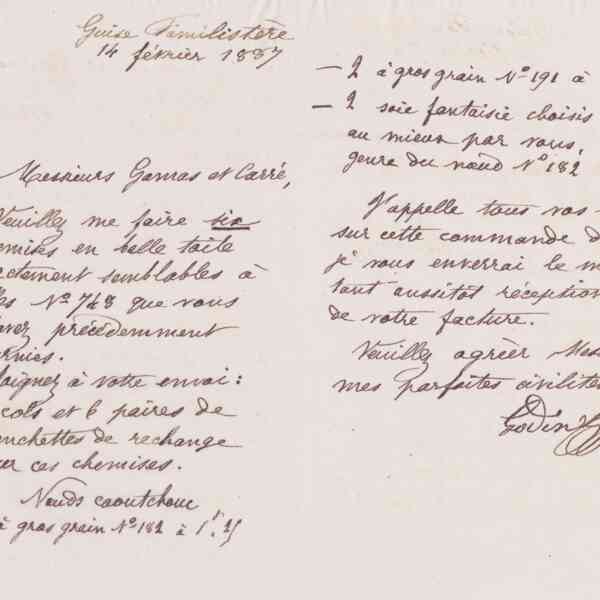 Guise Familistère
14 février 1887
Messieurs Gamas et Carré,
Veuillez me faire six
emises en belle toile
actement semblables à
les No 748 que vous
avez précédemment
urnies.
Joignez à votre envoi:
cols et 6 paires de
anchettes de rechange
ur ces chemises.
Nœuds caoutchouc
à gros grain No 182 à 1f. 25
— 2 à gros grain No 191 à
— 2 soie fantaisie choisis
au mieux par vous,
genre du nœud No 182
J'appelle tous vos
sur cette commande d
je vous enverrai le m
tant aussitot réception
de votre facture.
Veuillez agréer Mes
mes parfaites civilités
Godin